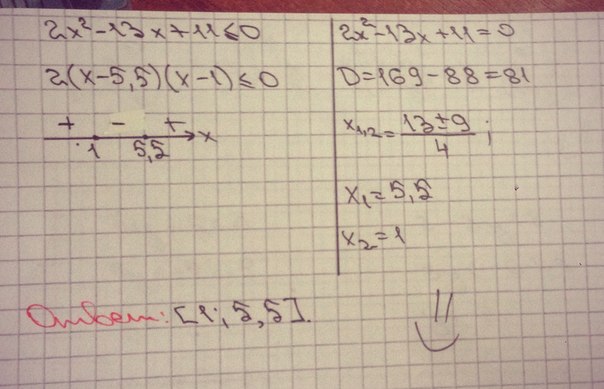 2x²-13x+11≤0
2(x-5,5)(x-1)≤0
+ - + x
1 5,5
2x²-13x+11=0
D=169-88=81
x₁,₂=(13±9)/4;
x₁=5,5
x₂=1
Ответ: [1; 5,5].